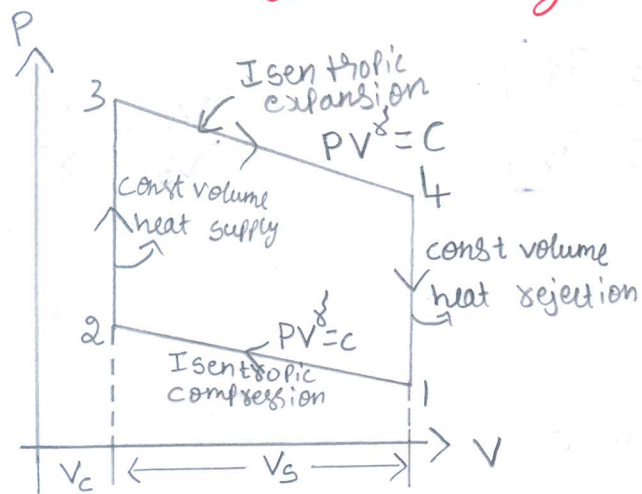 P
Isentropic
expansion
3
PV^γ = C
4
const volume
heat supply
const volume
heat rejection
2
PV^γ = c
Isentropic
compression
1
V
Vc
Vs